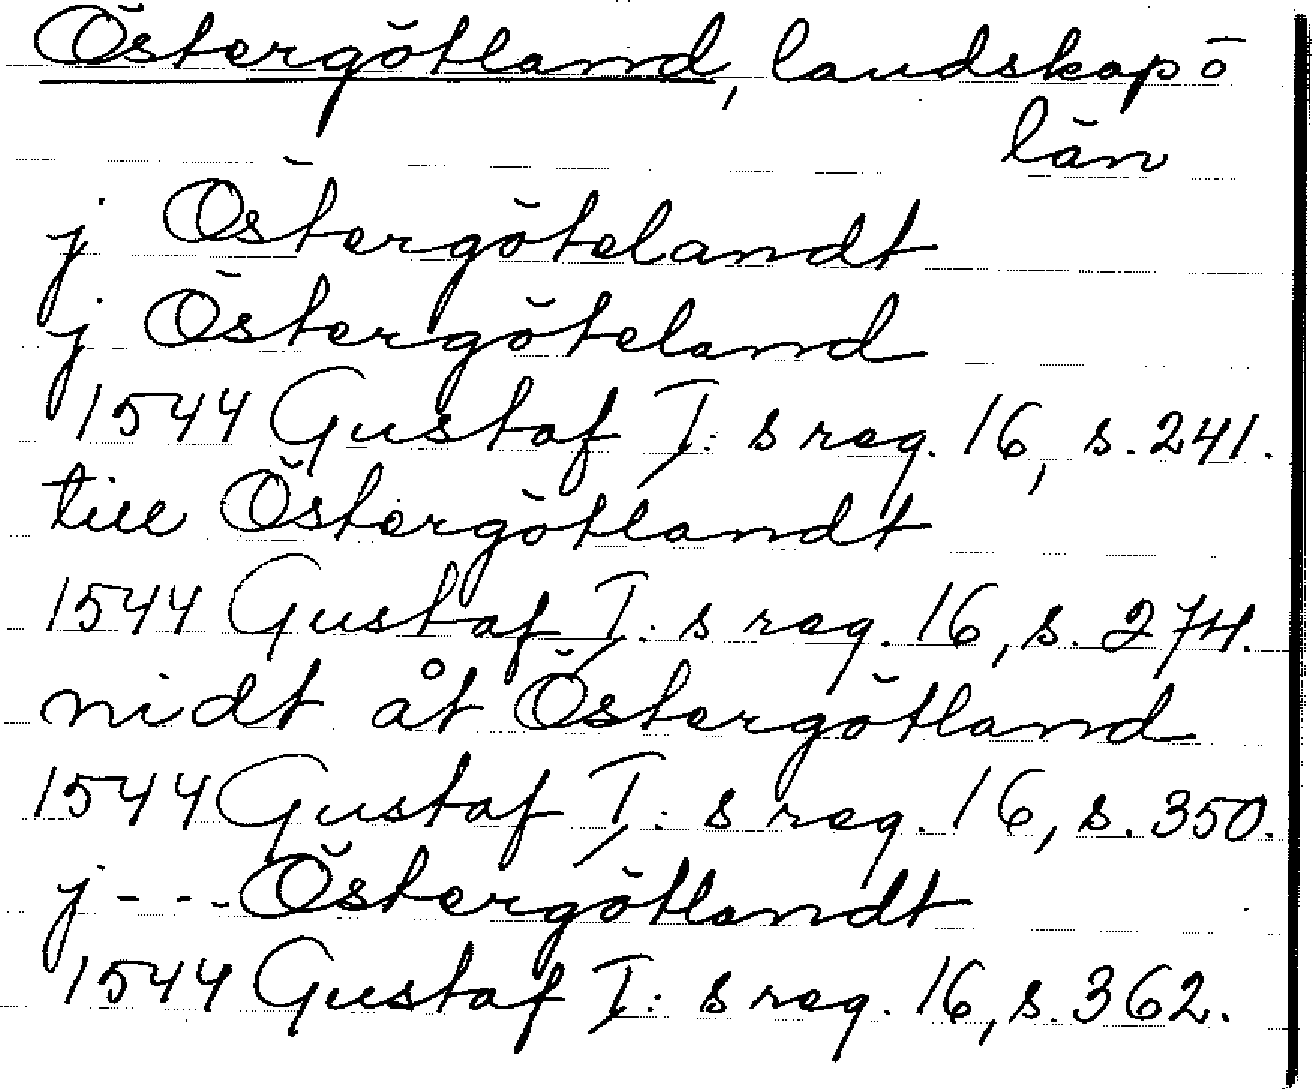 Östergötland, landskap o
län
j Östergötelandt
j Östergöteland
1544 Gustaf I:s reg. 16, s. 241.
till Östergötlandt
1544 Gustaf I:s reg. 16, s. 274.
nidt åt Östergötland
1544 Gustaf I:s reg. 16, s. 350.
j - - - Östergötlandt
1544 Gustaf I:s reg. 16, s. 362.